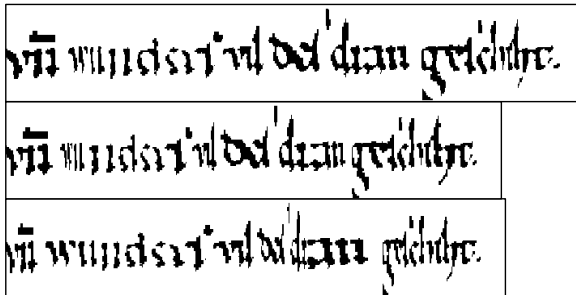 vn̄ wunders vil des dran geschihet.
vn̄ wunders vil des dran geschihet.
vn̄ wunders vil des dran geschihet.